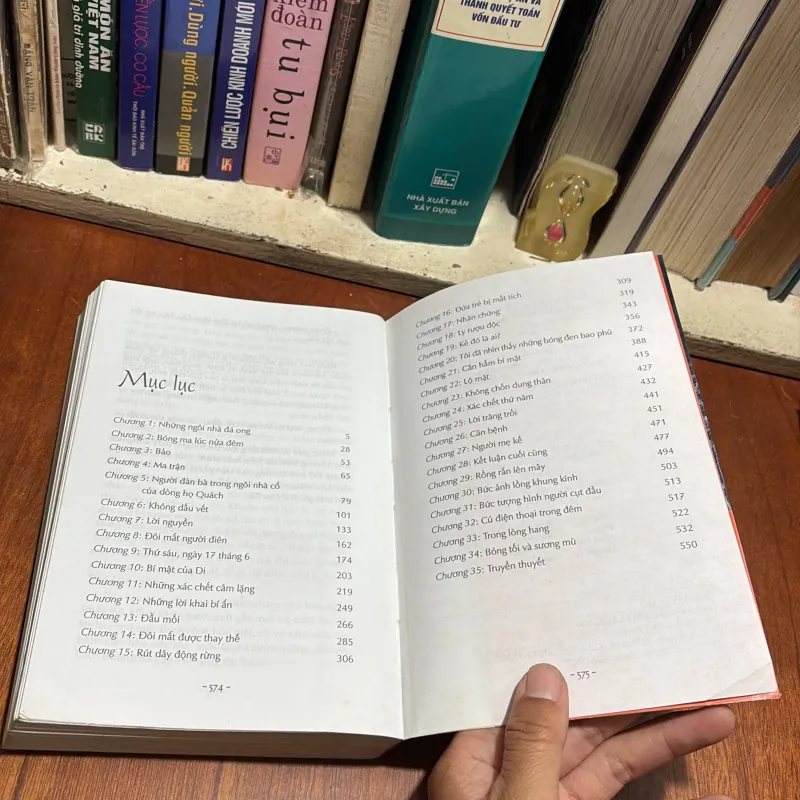 MÓN ĂN
VIỆT NAM
giá trị dinh dưỡng
LƯỢC, CƠ CẤU
NHÀ XUẤT BẢN TRẺ
THỜI BÁO KINH TẾ SÀI GÒN
Dùng người. Quản người
CHIẾN LƯỢC KINH DOANH MỚI
đoàn
tu bụi
THANH QUYẾT TOÁN
VỐN ĐẦU TƯ
NHÀ XUẤT BẢN
XÂY DỰNG
Mục lục
Chương 1: Những ngôi nhà đá ong 5
Chương 2: Bóng ma lúc nửa đêm 28
Chương 3: Bão 53
Chương 4: Ma trận 65
Chương 5: Người đàn bà trong ngôi nhà cổ
của dòng họ Quách 79
Chương 6: Không dấu vết 101
Chương 7: Lời nguyền 133
Chương 8: Đôi mắt người điên 162
Chương 9: Thứ sáu, ngày 17 tháng 6 174
Chương 10: Bí mật của Di 203
Chương 11: Những xác chết câm lặng 219
Chương 12: Những lời khai bí ẩn 249
Chương 13: Đầu mối 266
Chương 14: Đôi mắt được thay thế 285
Chương 15: Rút dây động rừng 306
- 574 -
Chương 16: Đứa trẻ bị mất tích 309
Chương 17: Nhân chứng 319
Chương 18: Ly rượu độc 343
Chương 19: Kẻ đó là ai? 356
Chương 20: Tôi đã nhìn thấy những bóng đen bao phủ 372
Chương 21: Căn hầm bí mật 388
Chương 22: Lộ mặt 415
Chương 23: Không chốn dung thân 427
Chương 24: Xác chết thứ năm 432
Chương 25: Lời trăng trối 441
Chương 26: Căn bệnh 451
Chương 27: Người mẹ kế 471
Chương 28: Kết luận cuối cùng 477
Chương 29: Rồng rắn lên mây 494
Chương 30: Bức ảnh lồng khung kính 503
Chương 31: Bức tượng hình người cụt đầu 513
Chương 32: Cú điện thoại trong đêm 517
Chương 33: Trong lòng hang 522
Chương 34: Bóng tối và sương mù 532
Chương 35: Truyền thuyết 550
- 575 -